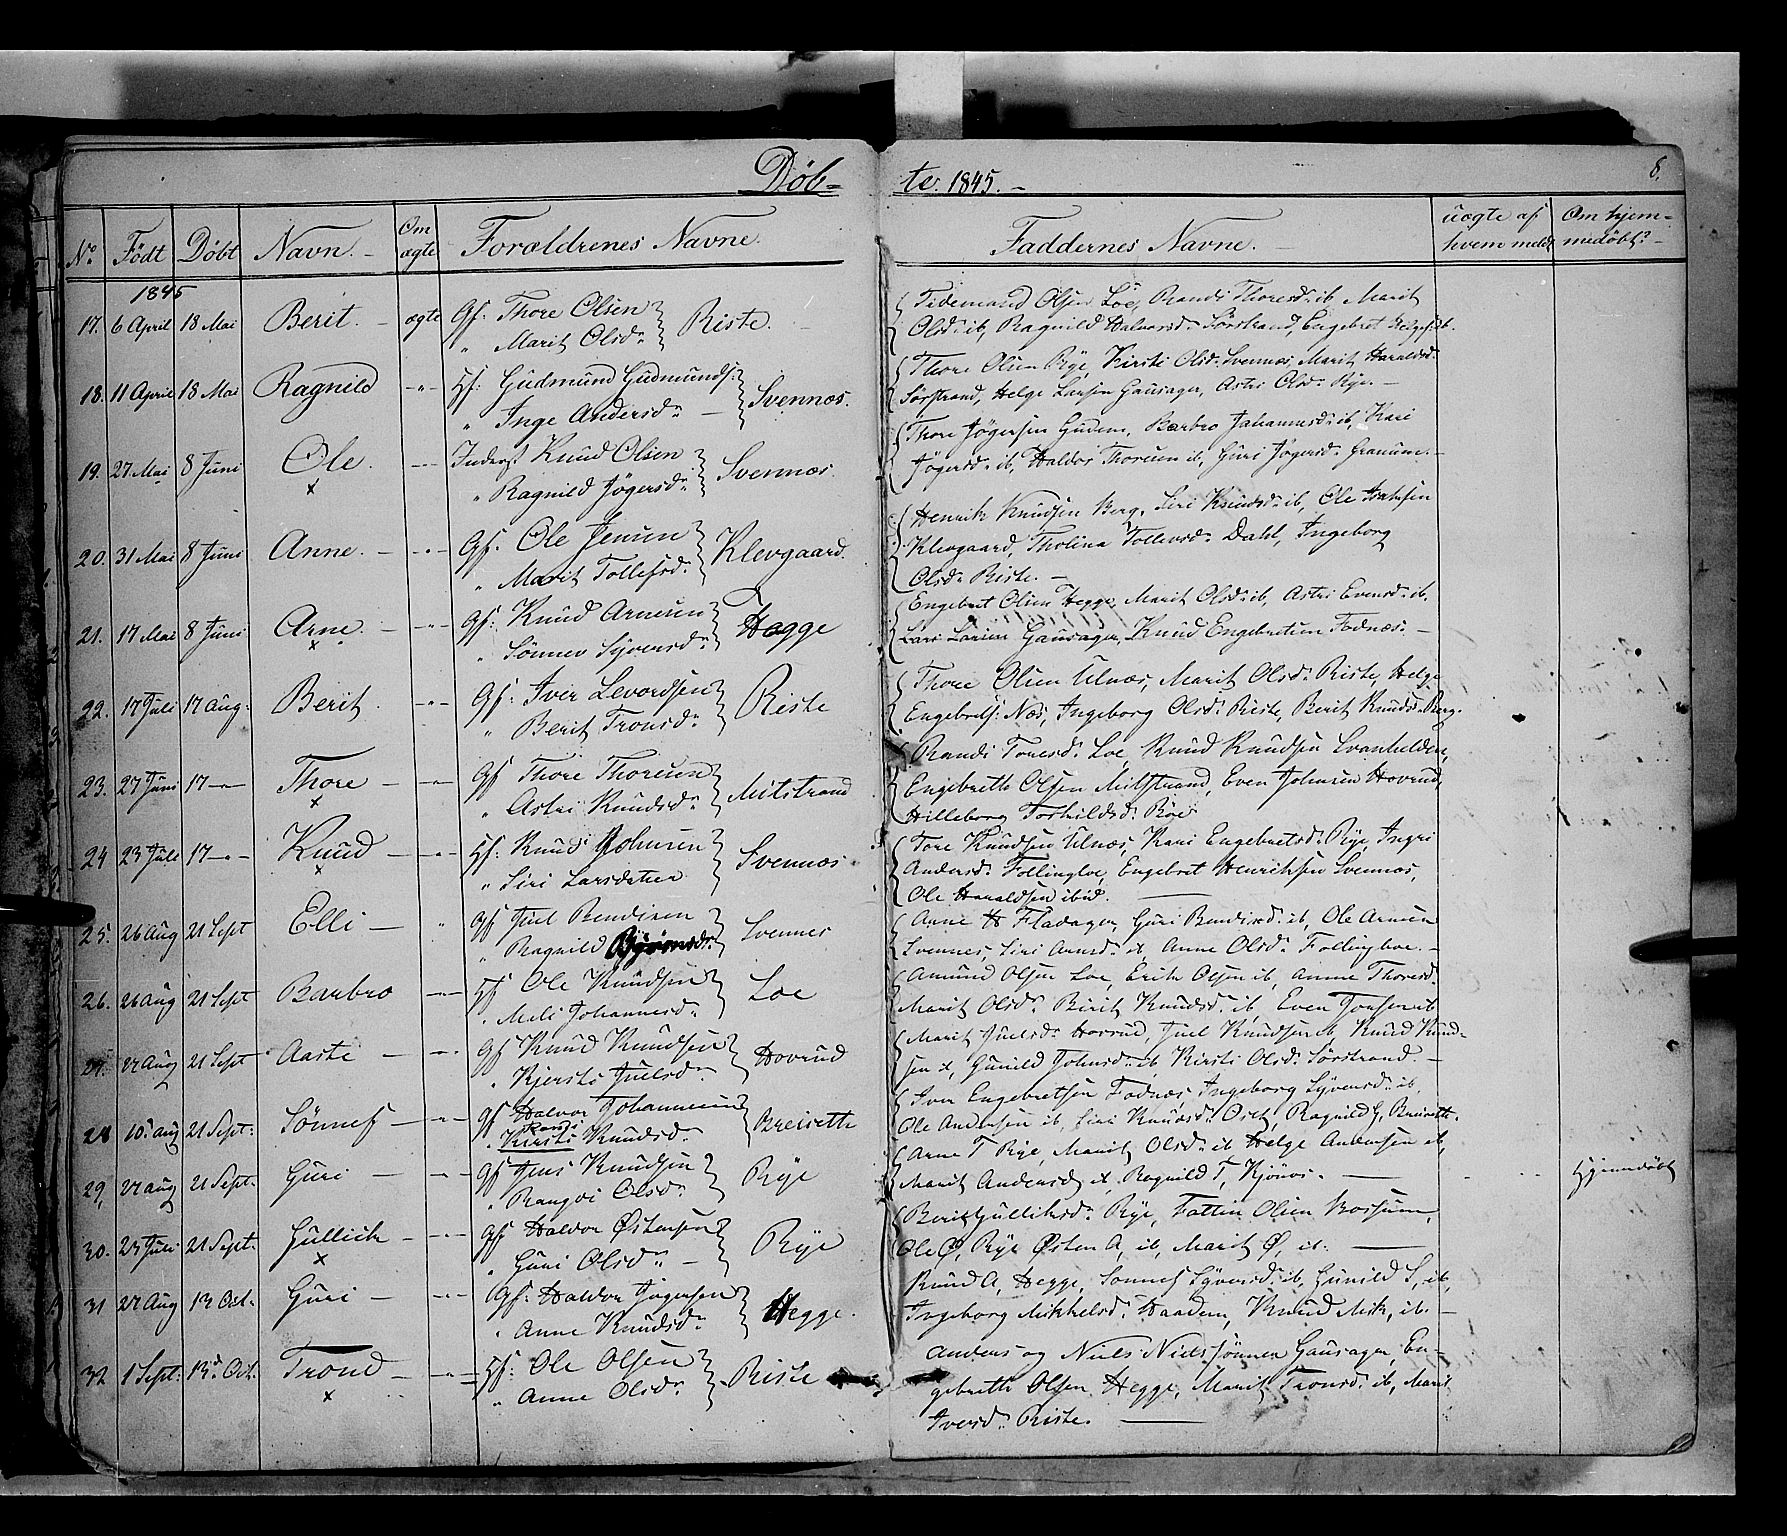 Døb-
te. 1845.
8.
No Født Døbt Navn. Om ægte Forældrenes Navne. Faddernes Navne. uægte af hvem meldt Om hjemmedøbt?
1845
17. 6 April 18 Mai Berit. ægte Gf: Thore Olsen Riste. Tidemand Olsen Loe, Randi Thoresd: ib, Marit
" Marit Olsd: Olsd: ib, Ragnild Halvorsd: Sørstrand, Engebret Helges: ib.
18. 11 April 18 Mai Ragnild Hf: Gudmund Gudmunds: Svennæs. Thore Olsen Rye, Kirsti Olsd: Svennæs, Marit Haraldsd:
" Inge Andersd: Sørstrand, Helge Larsen Gausager, Astri Olsd: Rye.
19. 27 Mai 8 Juni Ole. Inderst Knud Olsen Svennæs. Thore Jøgersen Gudem, Barbro Johannesd: ib, Kari
x " Ragnild Jøgersd: Jøgersd: ib, Haldor Thoresen ib, Guri Jøgersd: Granum.
20. 31 Mai 8 Juni Anne. Gf: Ole Jensen Klevgaard. Henrik Knudsen Berg, Siri Knudsd: ib, Ole
" Marit Tollefsd: Klevgaard, Tholina Tollevsd: Dahl, Ingeborg
Olsd: Riste.
21. 17 Mai 8 Juni Arne. Gf: Knud Arnesen Hegge Engebret Olsen Hegge, Marit Olsd: ib, Astri Evensd: ib.
x " Sønnev Syversd: Lars Larsen Gausager, Knud Engebretsen Fodnæs.
22. 17 Juli 17 Aug. Berit. Gf: Iver Levordsen Riste Thore Olsen Ulnæs, Marit Olsd: Riste, Helge
" Berit Tronsd: Engebrets: Næs, Ingeborg Olsd: Riste, Berit Knudsd: Berg.
23. 27 Juni 17 Thore Gf Thore Thoresen Mitstrand Randi Toresd: Loe, Knud Knudsen Svanhelden,
x " Astri Knudsd: Engebreth Olsen Mitstrand, Even Johnsen Hovrud,
Hilleborg Torkildsd: Rye
24 23 Juli 17 Knud Hf: Knud Johnsen Svennæs Tore Knudsen Ulnæs, Kari Engebretsd: Rye, Ingri
x " Siri Larsdatter Andersd: Follingloe, Engebret Henriksen Svennæs,
Ole Haraldsen ibid.
25. 26 Aug 21 Sept Elli Gf Juel Bendixen Svennes Anne H Fladager, Guri Bendixd: ib, Ole Arnesen
" Ragnild Svennes, Siri Arnesd: ib, Anne Olsd: Follingloe.
26. 26 Aug 21 Sept Barbro Hf Ole Knudsen Loe Amund Olsen Loe, Erik Olsen ib, Anne Thoresd:
" Meli Johannesd: Marit Olsd: Berit Knudsd: ib, Even ib
27. 22 Aug 21 Sept Aaste Gf Knud Knudsen Hovrud Marit Juelsd: Hovrud, Juel Knudsen ib, Knud Knud-
" Kjersti Juelsd: sen ib, Gunild Johnsd: ib, Kirsti Olsd: Sørstrand.
28 10: Aug 21 Sept: Sønnef Gf Haldor Johannesen Breisette Iver Engebretsen Fodnæs, Ingeborg Syversd: ib,
Randi
" Kirsti Knudsd: Ole Andersen ib, Siri Knudsd: Ragnild G. Breisette.
29, 22 Aug 21 Sept. Guri Gf Jens Knudsen Rye Arne T Rye, Marit Olsd: ib Helge Andersen ib,
" Rangdi Olsd: Marit Andersd: ib, Ragnild T, Kjønos. Hjemmedøbt
30. 23 Juli 21 Sept. Gullich Gf Haldor Østensen Rye Berit Gulliksd: Rye, Olsen
x " Guri Olsd: Ole Ø, Rye Østen A, ib, Marit Ø, ib.
31 22 Aug 13 Oct. Guri Gf: Haldor Jøgersen Hegge. Knud A, Hegge, Sønnef Syversd: ib, Gunild S, ib,
" Anne Knudsd: Ingeborg Mikkelsd: Haadem, Knud Mik, ib.
32 1 Sept: 13d Oct. Trond Hf: Ole Olsen Riste Anders og Niels Nielssønner Gausager, En-
x " Anne Olsd: gebreth Olsen Hegge, Marit Tronsd: ib, Marit
Iversd: Riste.